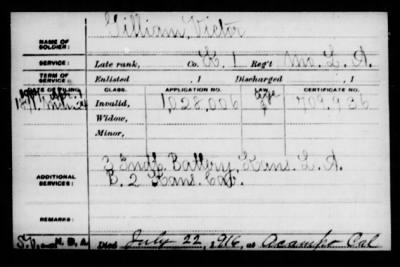 Gilliam, Victor
NAME OF SOLDIER:
SERVICE: Late rank, Co. K, 1 Reg't Mo. L. A.
TERM OF SERVICE: Enlisted , 1 Discharged , 1
DATE OF FILING. CLASS. APPLICATION NO. LAW. CERTIFICATE NO.
Invalid, 1,028,006 709,936
Widow,
Minor,
ADDITIONAL SERVICES: 3 Indt. Battery, Kans. L. A.
B. 2 Kans. Cav.
REMARKS:
Died July 22, 1916, at Acampo Cal